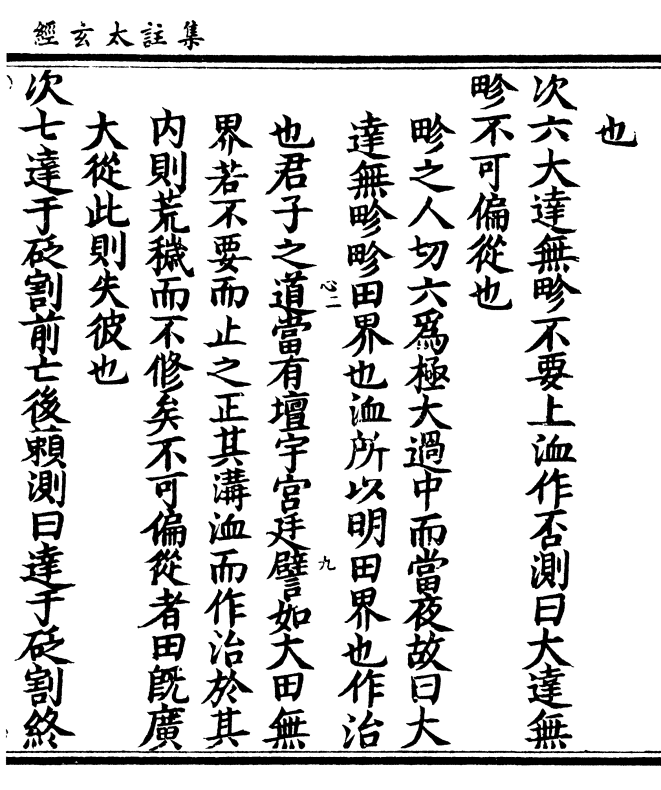 集註太玄經
也
次六大達無畛不要上洫作否測曰大達無
畛不可偏從也
畛之人切六爲極大過中而當夜故曰大
達無畛畛田界也洫所以明田界也作治
也君子之道當有壇宇宮廷譬如大田無
心二
九
界若不要而止之正其溝洫而作治於其
内則荒穢而不修矣不可偏從者田旣廣
大從此則失彼也
次七達于砭割前亡後賴測曰達于砭割終